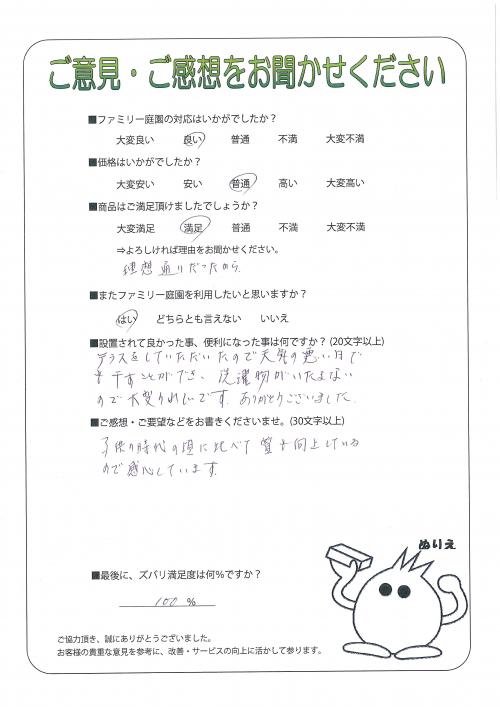 ご意見・ご感想をお聞かせください
■ファミリー庭園の対応はいかがでしたか？
大変良い 良い 普通 不満 大変不満
■価格はいかがでしたか？
大変安い 安い 普通 高い 大変高い
■商品はご満足頂けましたでしょうか？
大変満足 満足 普通 不満 大変不満
⇒よろしければ理由をお聞かせください。
理想通りだったから
■またファミリー庭園を利用したいと思いますか？
はい どちらとも言えない いいえ
■設置されて良かった事、便利になった事は何ですか？(20文字以上)
テラスをしていただいたので天気の悪い日で
も干すことができ、洗濯物がいたまない
ので大変うれしいです。ありがとうございました。
■ご感想・ご要望などをお書きくださいませ。(30文字以上)
子供の時代の頃に比べて質も向上している
ので感心しています。
ぬりえ
■最後に、ズバリ満足度は何%ですか？
100 %
ご協力頂き、誠にありがとうございました。
お客様の貴重な意見を参考に、改善・サービスの向上に活かして参ります。